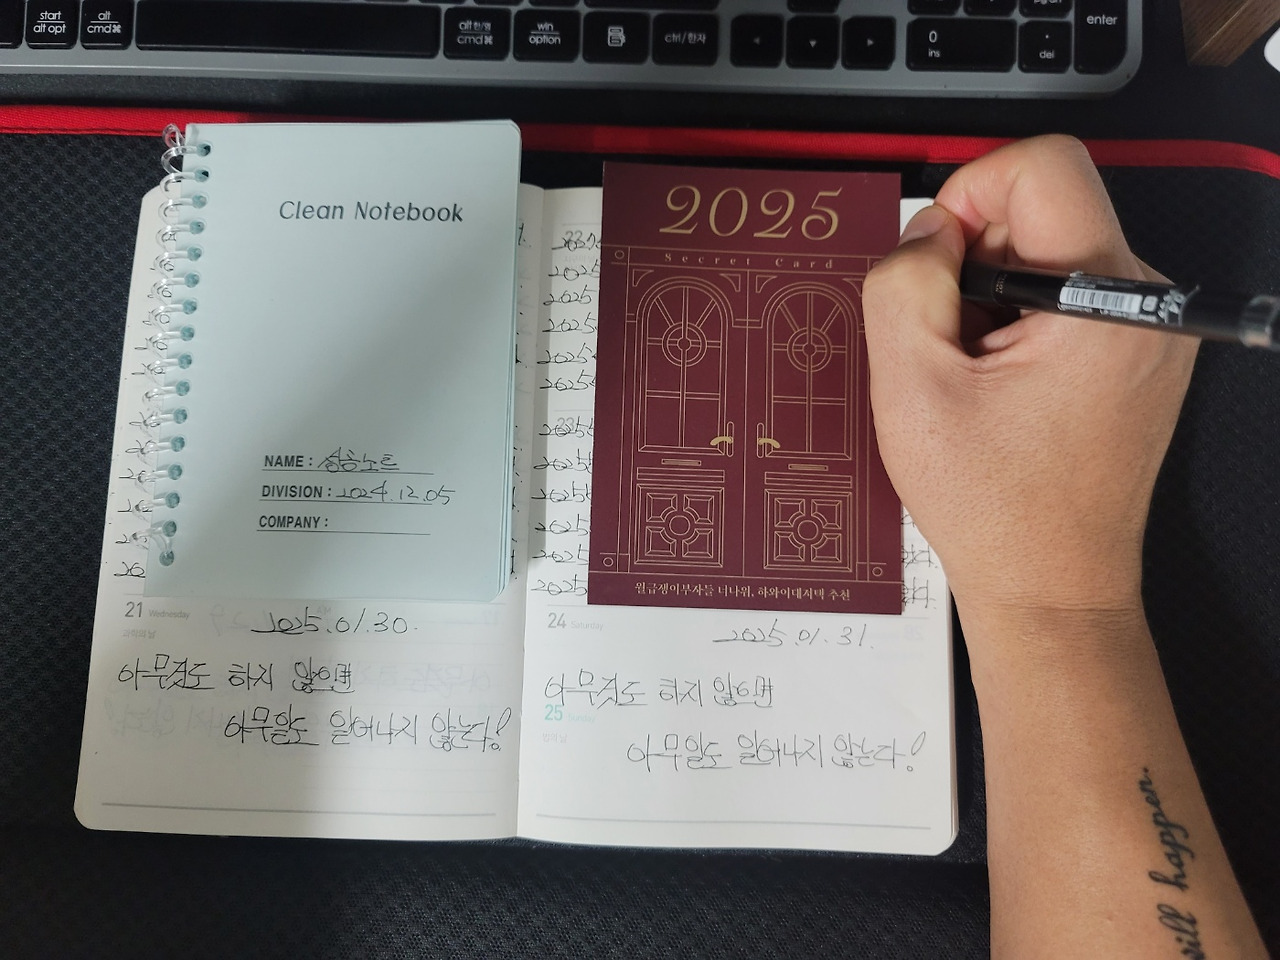 start
alt opt
alt
cmd⌘
alt 한/영
cmd⌘
win
option
ctrl/한자
0
ins
.
del
enter
Clean Notebook
NAME : 성공노트
DIVISION : 2024.12.05
COMPANY :
2025
Secret Card
월급쟁이부자들 너나위, 하와이대저택 추천
2025
2025
2025
2025
2025
2025
2025
2025
2025
2025
21 Wednesday
2025.01.30.
아무것도 하지 않으면
아무일도 일어나지 않는다!
24 Saturday
2025.01.31.
아무것도 하지 않으면
25 Sunday
아무일도 일어나지 않는다!
will happen.